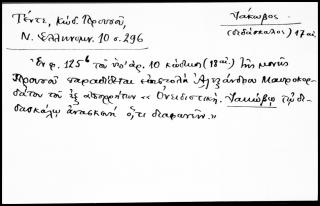 Τέντε, Κώδ. Προυσοῦ,
Ν. Ἑλληνομν. 10 σ. 296
Ἰάκωβος.
(διδάσκαλος) 17 αι.
Ἐν φ. 125β τοῦ ὑπ' ἀρ. 10 κώδικος (18 αι) τῆς μονῆς
Προυσοῦ παραδίδεται ἐπιστολὴ Ἀλεξάνδρου Μαυροκορ-
δάτου τοῦ ἐξ ἀπορρήτων «Ὀνειδιστική. Ἰακώβῳ τῷ δι-
δασκάλῳ ὅ,τι διαφωνῶν.»